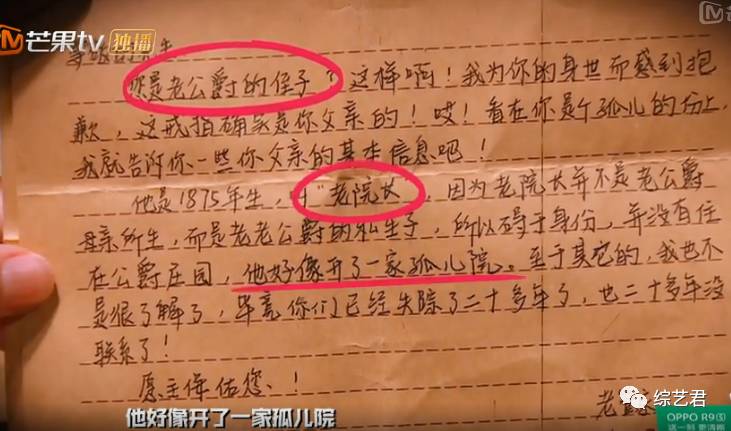 芒果TV 独播
芒
您是老公爵的侄子？这样啊！我为你的身世而感到抱
歉，这戒指确实是你父亲的！哎！看在你是个孤儿的份上，
我就告诉你一些你父亲的基本信息吧！
他是1875年生，叫“老院长”，因为老院长并不是老公爵
母亲所生，而是老老公爵的私生子，所以碍于身份，并没有住
在公爵庄园，他好像开了一家孤儿院。至于其它的，我也不
是很了解了，毕竟你们已经失踪了二十多年了，也二十多年没
联系了！
愿主保佑您！
老
他好像开了一家孤儿院
综艺君
OPPO R9s
这一刻 更清晰